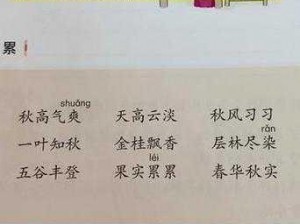 累
shuǎng
秋高气爽 天高云淡 秋风习习
rǎn
一叶知秋 金桂飘香 层林尽染
léi
五谷丰登 果实累累 春华秋实